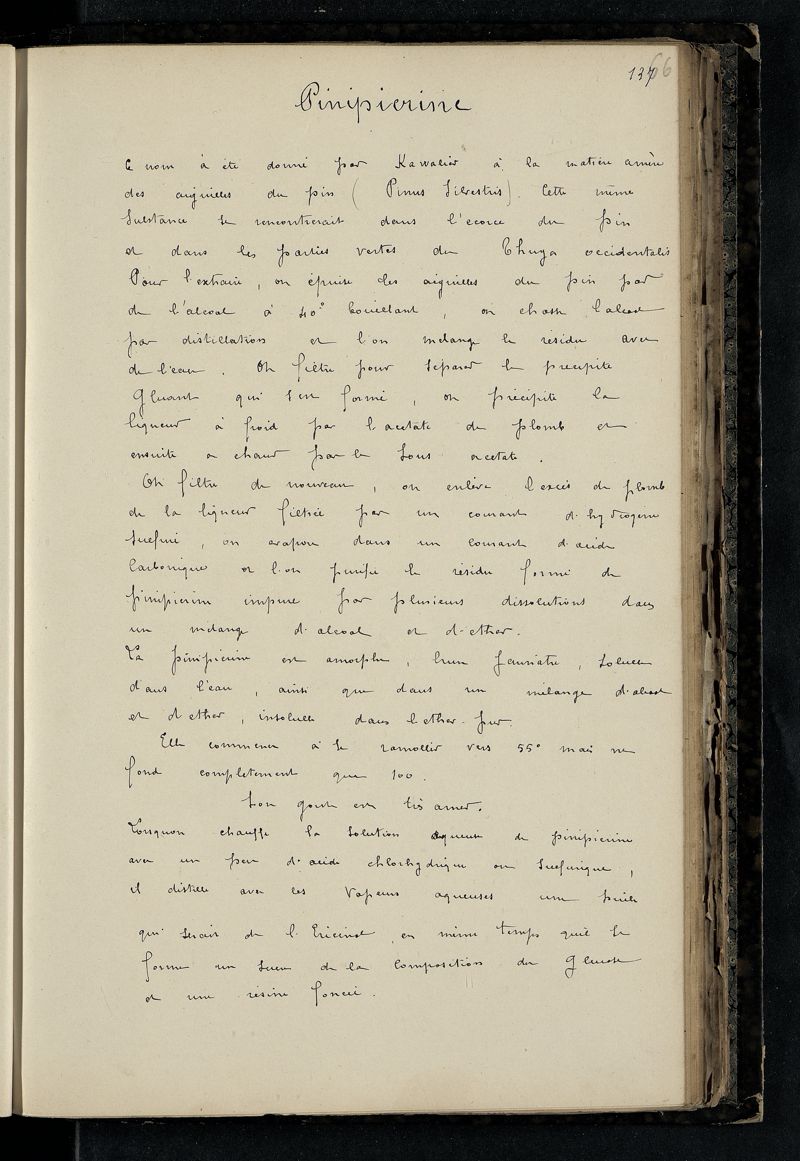 137 66
Pinipicrine
Ce nom à été donné par Kawalier à la matière amère
des aiguilles du pin ( Pinus Silvestris). Cette même
Substance se rencontrerait dans l'écorce du pin
et dans les parties vertes du Thuya occidentalis
Pour l'extraire, on épuise les aiguilles du pin par
de l'alcool à 40° bouillant, on chasse l'alcool
par distillation et l'on mélange le résidu avec
de l'eau. On filtre pour séparer le précipité
gluant qui s'en formé, on précipite la
liqueur à froid par l'acétate de plomb et
ensuite a chaud par le Sous acétate.
On filtre de nouveau, on enlève l'excès de plomb
de la liqueur filtrée par un courant d'hydrogène
sulfuré, on évapore dans un courant d'acide
Carbonique et l'on purifie le résidu formé de
pinipicrine impure par plusieurs dissolutions dans
un mélange d'alcool et d'éther.
La pinipicrine est amorphe, brun jaunâtre, soluble
dans l'eau, ainsi que dans un mélange d'alcool
et d'éther, insoluble dans l'éther pur.
Elle commence à se ramollir vers 55° mais ne
fond complètement que 100.
Son goût est très amer.
Lorsquon chauffe la solution aqueuse de pinipicrine
avec un peu d'acide chlorhydrique ou sulfurique,
il distille avec les vapeurs aqueuses une huile
qui serait de l'Ericinol en même temps qu'il se
forme un sucre de la Composition du Glucose
et une résine foncée.